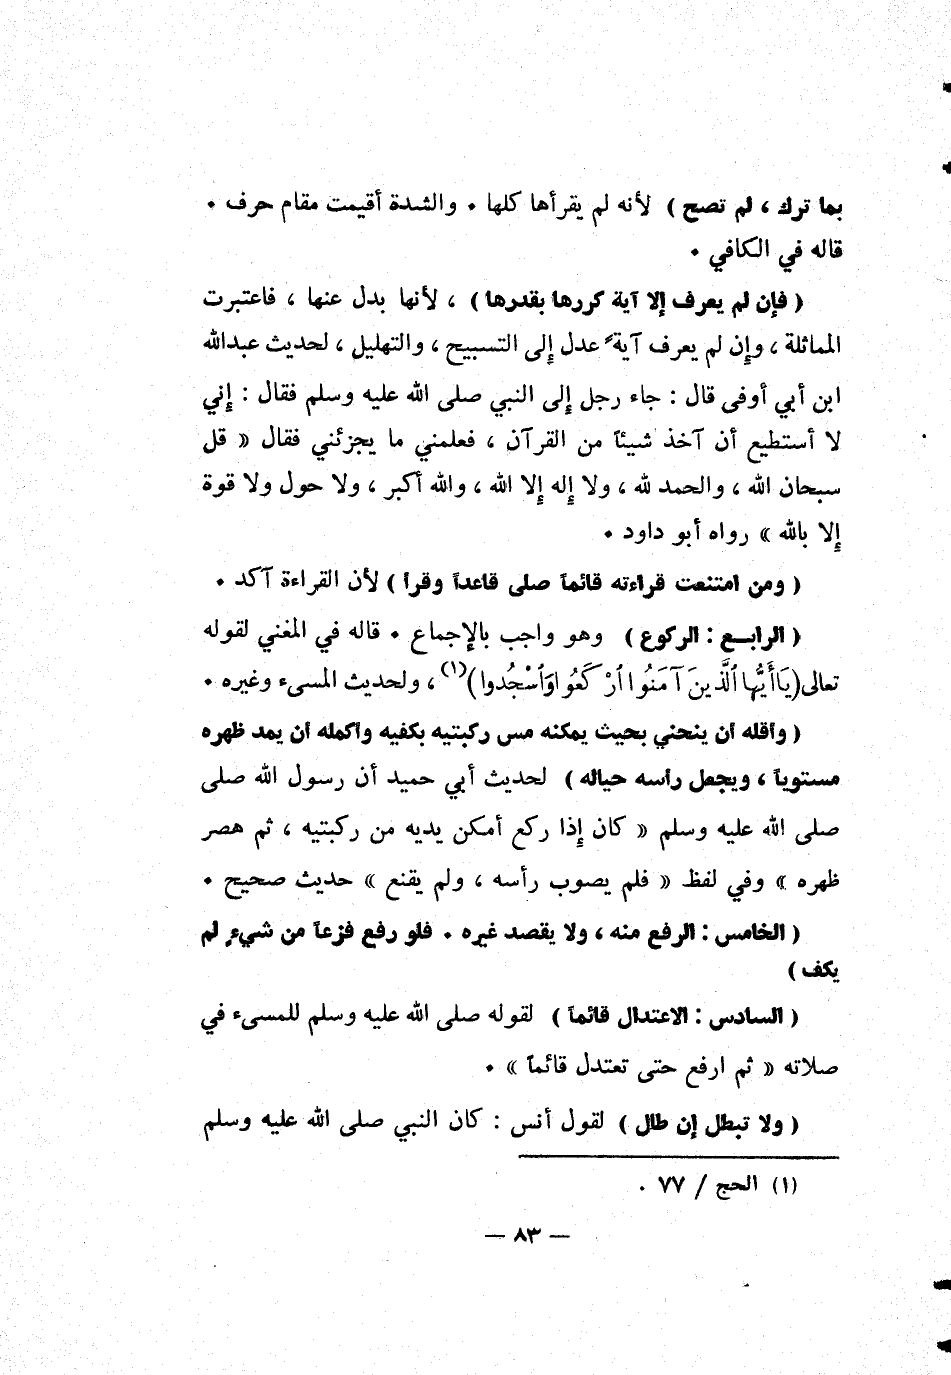 بما ترك ، لم تصح ) لأنه لم يقرأها كلها . والشدة أقيمت مقام حرف .
قاله في الكافي .
( فإن لم يعرف إلا آية كررها بقدرها ) ، لأنها بدل عنها ، فاعتبرت
المماثلة ، وإن لم يعرف آيةً عدل إلى التسبيح ، والتهليل ، لحديث عبدالله
ابن أبي أوفى قال : جاء رجل إلى النبي صلى الله عليه وسلم فقال : إني
لا أستطيع أن آخذ شيئاً من القرآن ، فعلمني ما يجزئني فقال « قل
سبحان الله ، والحمد لله ، ولا إله إلا الله ، والله أكبر ، ولا حول ولا قوة
إلا بالله » رواه أبو داود .
( ومن امتنعت قراءته قائماً صلى قاعداً وقرأ ) لأن القراءة آكد .
( الرابع : الركوع ) وهو واجب بالإجماع . قاله في المغني لقوله
تعالى (يَاأَيُّهَا ٱلَّذِينَ آمَنُوا ٱرْكَعُوا وَٱسْجُدُوا)(١) ، ولحديث المسيء وغيره .
( وأقله أن ينحني بحيث يمكنه مس ركبتيه بكفيه وأكمله أن يمد ظهره
مستوياً ، ويجعل رأسه حياله ) لحديث أبي حميد أن رسول الله صلى
صلى الله عليه وسلم « كان إذا ركع أمكن يديه من ركبتيه ، ثم هصر
ظهره » وفي لفظ « فلم يصوب رأسه ، ولم يقنع » حديث صحيح .
( الخامس : الرفع منه ، ولا يقصد غيره . فلو رفع فزعاً من شيءٍ لم
يكف )
( السادس : الاعتدال قائماً ) لقوله صلى الله عليه وسلم للمسيء في
صلاته « ثم ارفع حتى تعتدل قائماً » .
( ولا تبطل إن طال ) لقول أنس : كان النبي صلى الله عليه وسلم
(١) الحج / ٧٧ .
— ٨٣ —